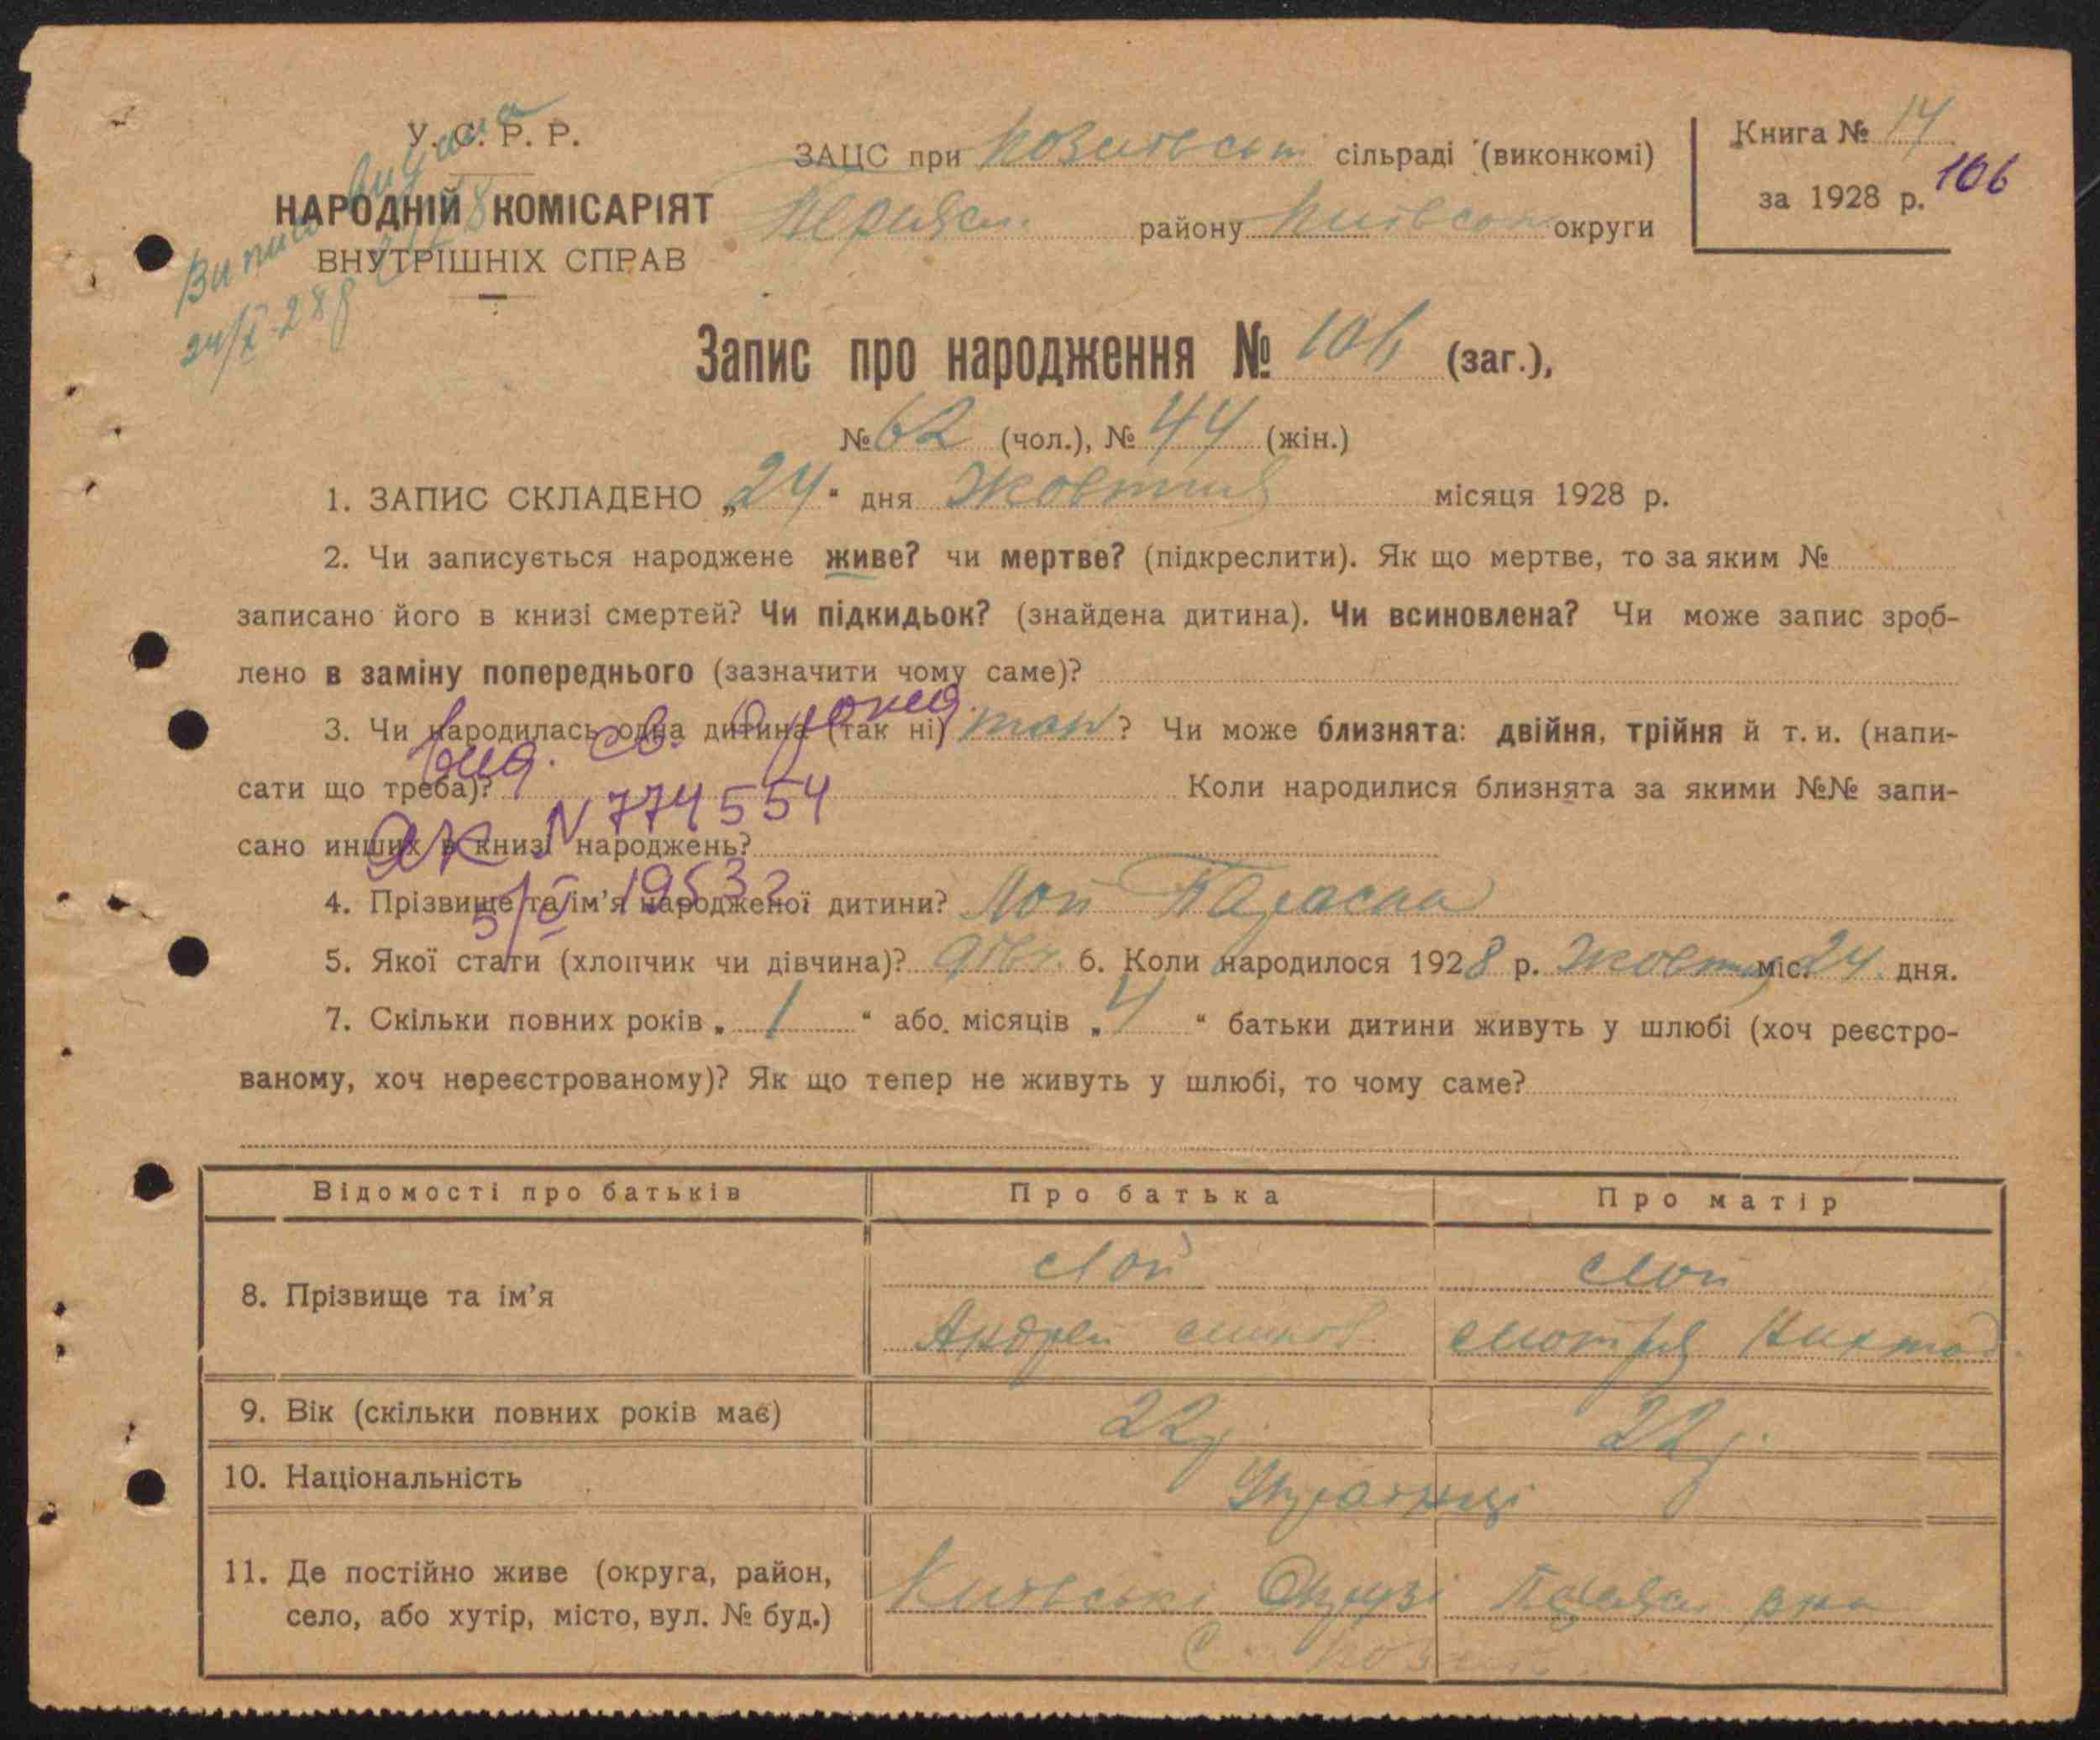 У. С. Р. Р.
НАРОДНІЙ КОМІСАРІЯТ
ВНУТРІШНІХ СПРАВ
Випис видана
24/X 28 р
ЗАЦС при сільраді (виконкомі)
району Київської округи
Книга № 14
за 1928 р. 106
Запис про народження № 106 (заг.),
№ 62 (чол.), № 44 (жін.)
1. ЗАПИС СКЛАДЕНО „24“ дня Жовтня місяця 1928 р.
2. Чи записується народжене живе? чи мертве? (підкреслити). Як що мертве, то за яким №
записано його в книзі смертей? Чи підкидьок? (знайдена дитина). Чи всиновлена? Чи може запис зроб-
лено в заміну попереднього (зазначити чому саме)?
3. Чи народилась одна дитина (так ні) так? Чи може близнята: двійня, трійня й т. и. (напи-
сати що треба)? Коли народилися близнята за якими №№ запи-
сано инших в книзі народжень?
Выд. св. о рожд.
N 774554
5/V 1953 г.
4. Прізвище та ім’я народженої дитини? Лой Параска
5. Якої стати (хлопчик чи дівчина)? дівч. 6. Коли народилося 1928 р. Жовтня міс. 24 дня.
7. Скільки повних років „ 1 “ або місяців „ 4 “ батьки дитини живуть у шлюбі (хоч реєстро-
ваному, хоч нереєстрованому)? Як що тепер не живуть у шлюбі, то чому саме?
Відомості про батьків Про батька Про матір
8. Прізвище та ім’я Лой Лой
Андрей Мотря
9. Вік (скільки повних років має) 22 р. 22 р.
10. Національність Українці
11. Де постійно живе (округа, район, Київські Окрузі
село, або хутір, місто, вул. № буд.) с.